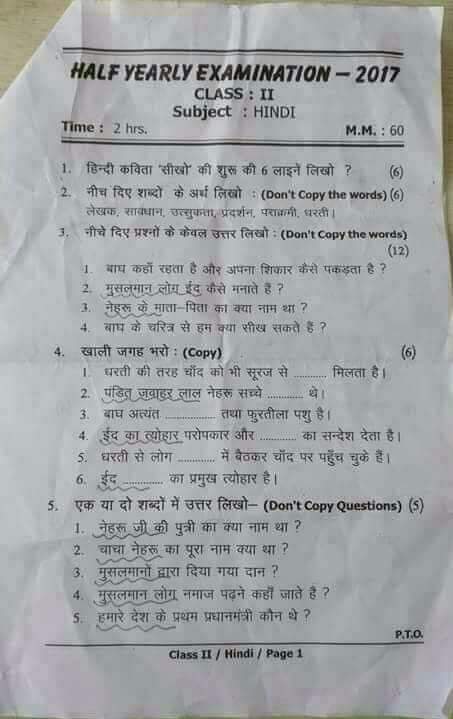 HALF YEARLY EXAMINATION – 2017
CLASS : II
Subject : HINDI
Time : 2 hrs. M.M. : 60
1. हिन्दी कविता 'सीखो' की शुरू की 6 लाइनें लिखो ? (6)
2. नीच दिए शब्दों के अर्थ लिखो : (Don't Copy the words) (6)
लेखक, सावधान, उत्सुकता, प्रदर्शन, पराक्रमी, धरती।
3. नीचे दिए प्रश्नों के केवल उत्तर लिखो : (Don't Copy the words)
(12)
1. बाघ कहाँ रहता है और अपना शिकार कैसे पकड़ता है ?
2. मुसलमान लोग ईद कैसे मनाते हैं ?
3. नेहरू के माता–पिता का क्या नाम था ?
4. बाघ के चरित्र से हम क्या सीख सकते हैं ?
4. खाली जगह भरो : (Copy) (6)
1. धरती की तरह चाँद को भी सूरज से ........... मिलता है।
2. पंडित जवाहर लाल नेहरू सच्चे ............ थे।
3. बाघ अत्यंत ................ तथा फुरतीला पशु है।
4. ईद का त्योहार परोपकार और ............ का सन्देश देता है।
5. धरती से लोग ............ में बैठकर चाँद पर पहुँच चुके हैं।
6. ईद ............. का प्रमुख त्योहार है।
5. एक या दो शब्दों में उत्तर लिखो– (Don't Copy Questions) (5)
1. नेहरू जी की पुत्री का क्या नाम था ?
2. चाचा नेहरू का पूरा नाम क्या था ?
3. मुसलमानों द्वारा दिया गया दान ?
4. मुसलमान लोग नमाज पढ़ने कहाँ जाते हैं ?
5. हमारे देश के प्रथम प्रधानमंत्री कौन थे ?
P.T.O.
Class II / Hindi / Page 1